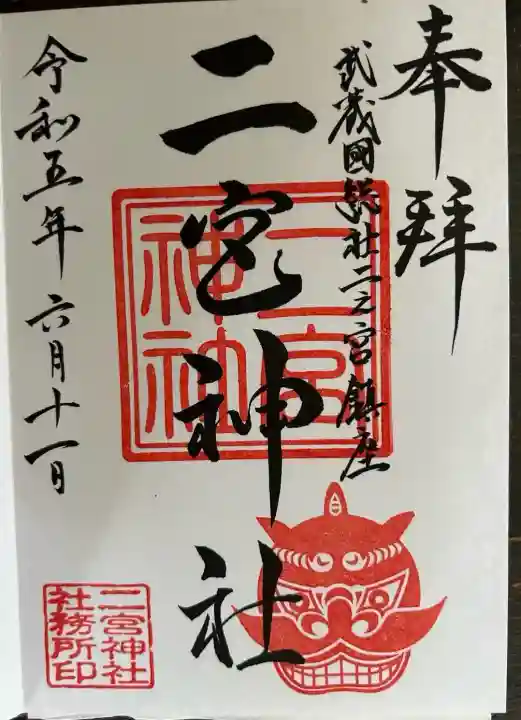 奉拝
武蔵國総社二之宮鎮座
二宮神社
二宮
神社
令和五年六月十一日
二宮神社
社務所印